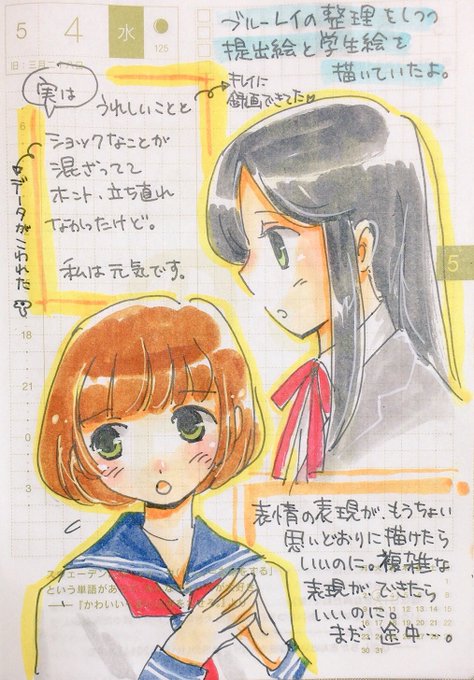 5 4 水
125
ブルーレイの整理をしつつ
提出絵と学生絵を
描いていたよ。
実は
うれしいことと
キレイに
録画できてた
ショックなことが
混ざってて
ホント、立ち直れ
なかったけど。
私は元気です。
データがこわれた
6
18
21
0
3
5
表情の表現が、もうちょい
思いどおりに描けたら
いいのに。複雑な
表現ができたら
いいのに。
まだ途中…。
という単語があ